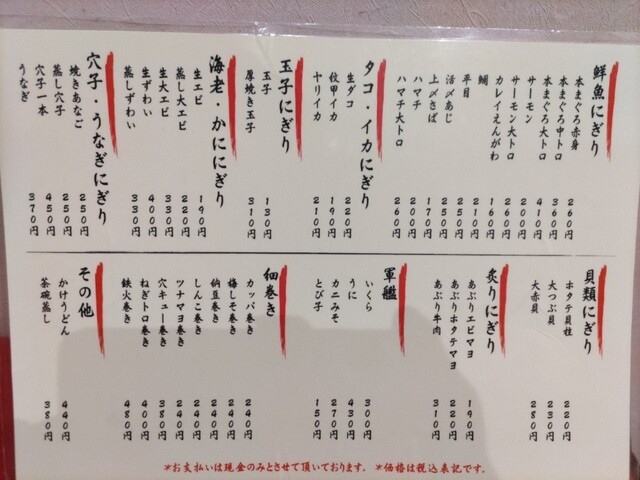 鮮魚にぎり
本まぐろ赤身 260円
本まぐろ中トロ 360円
本まぐろ大トロ 410円
サーモン 200円
サーモン大トロ 260円
カレイえんがわ 160円
鯛 210円
平目 250円
活〆あじ 250円
上〆さば 170円
ハマチ 200円
ハマチ大トロ 260円
タコ・イカにぎり
生ダコ 220円
紋甲イカ 190円
ヤリイカ 210円
玉子にぎり
玉子 130円
厚焼き玉子 310円
海老・かににぎり
生エビ 190円
蒸し大エビ 220円
生大エビ 330円
生ずわい 400円
蒸しずわい 330円
穴子・うなぎにぎり
焼きあなご 250円
蒸し穴子 250円
穴子一本 450円
うなぎ 370円
貝類にぎり
ホタテ貝柱 220円
大つぶ貝 230円
大赤貝 280円
炙りにぎり
あぶりエビマヨ 190円
あぶりホタテマヨ 220円
あぶり牛肉 310円
軍艦
いくら 300円
うに 430円
カニみそ 270円
とび子 150円
細巻き
カッパ巻き 240円
梅しそ巻き 240円
納豆巻き 240円
しんこ巻き 240円
ツナマヨ巻き 240円
穴キュー巻き 380円
ねぎトロ巻き 400円
鉄火巻き 480円
その他
かけうどん 440円
茶碗蒸し 380円
＊お支払いは現金のみとさせて頂いております。 ＊価格は税込表記です。